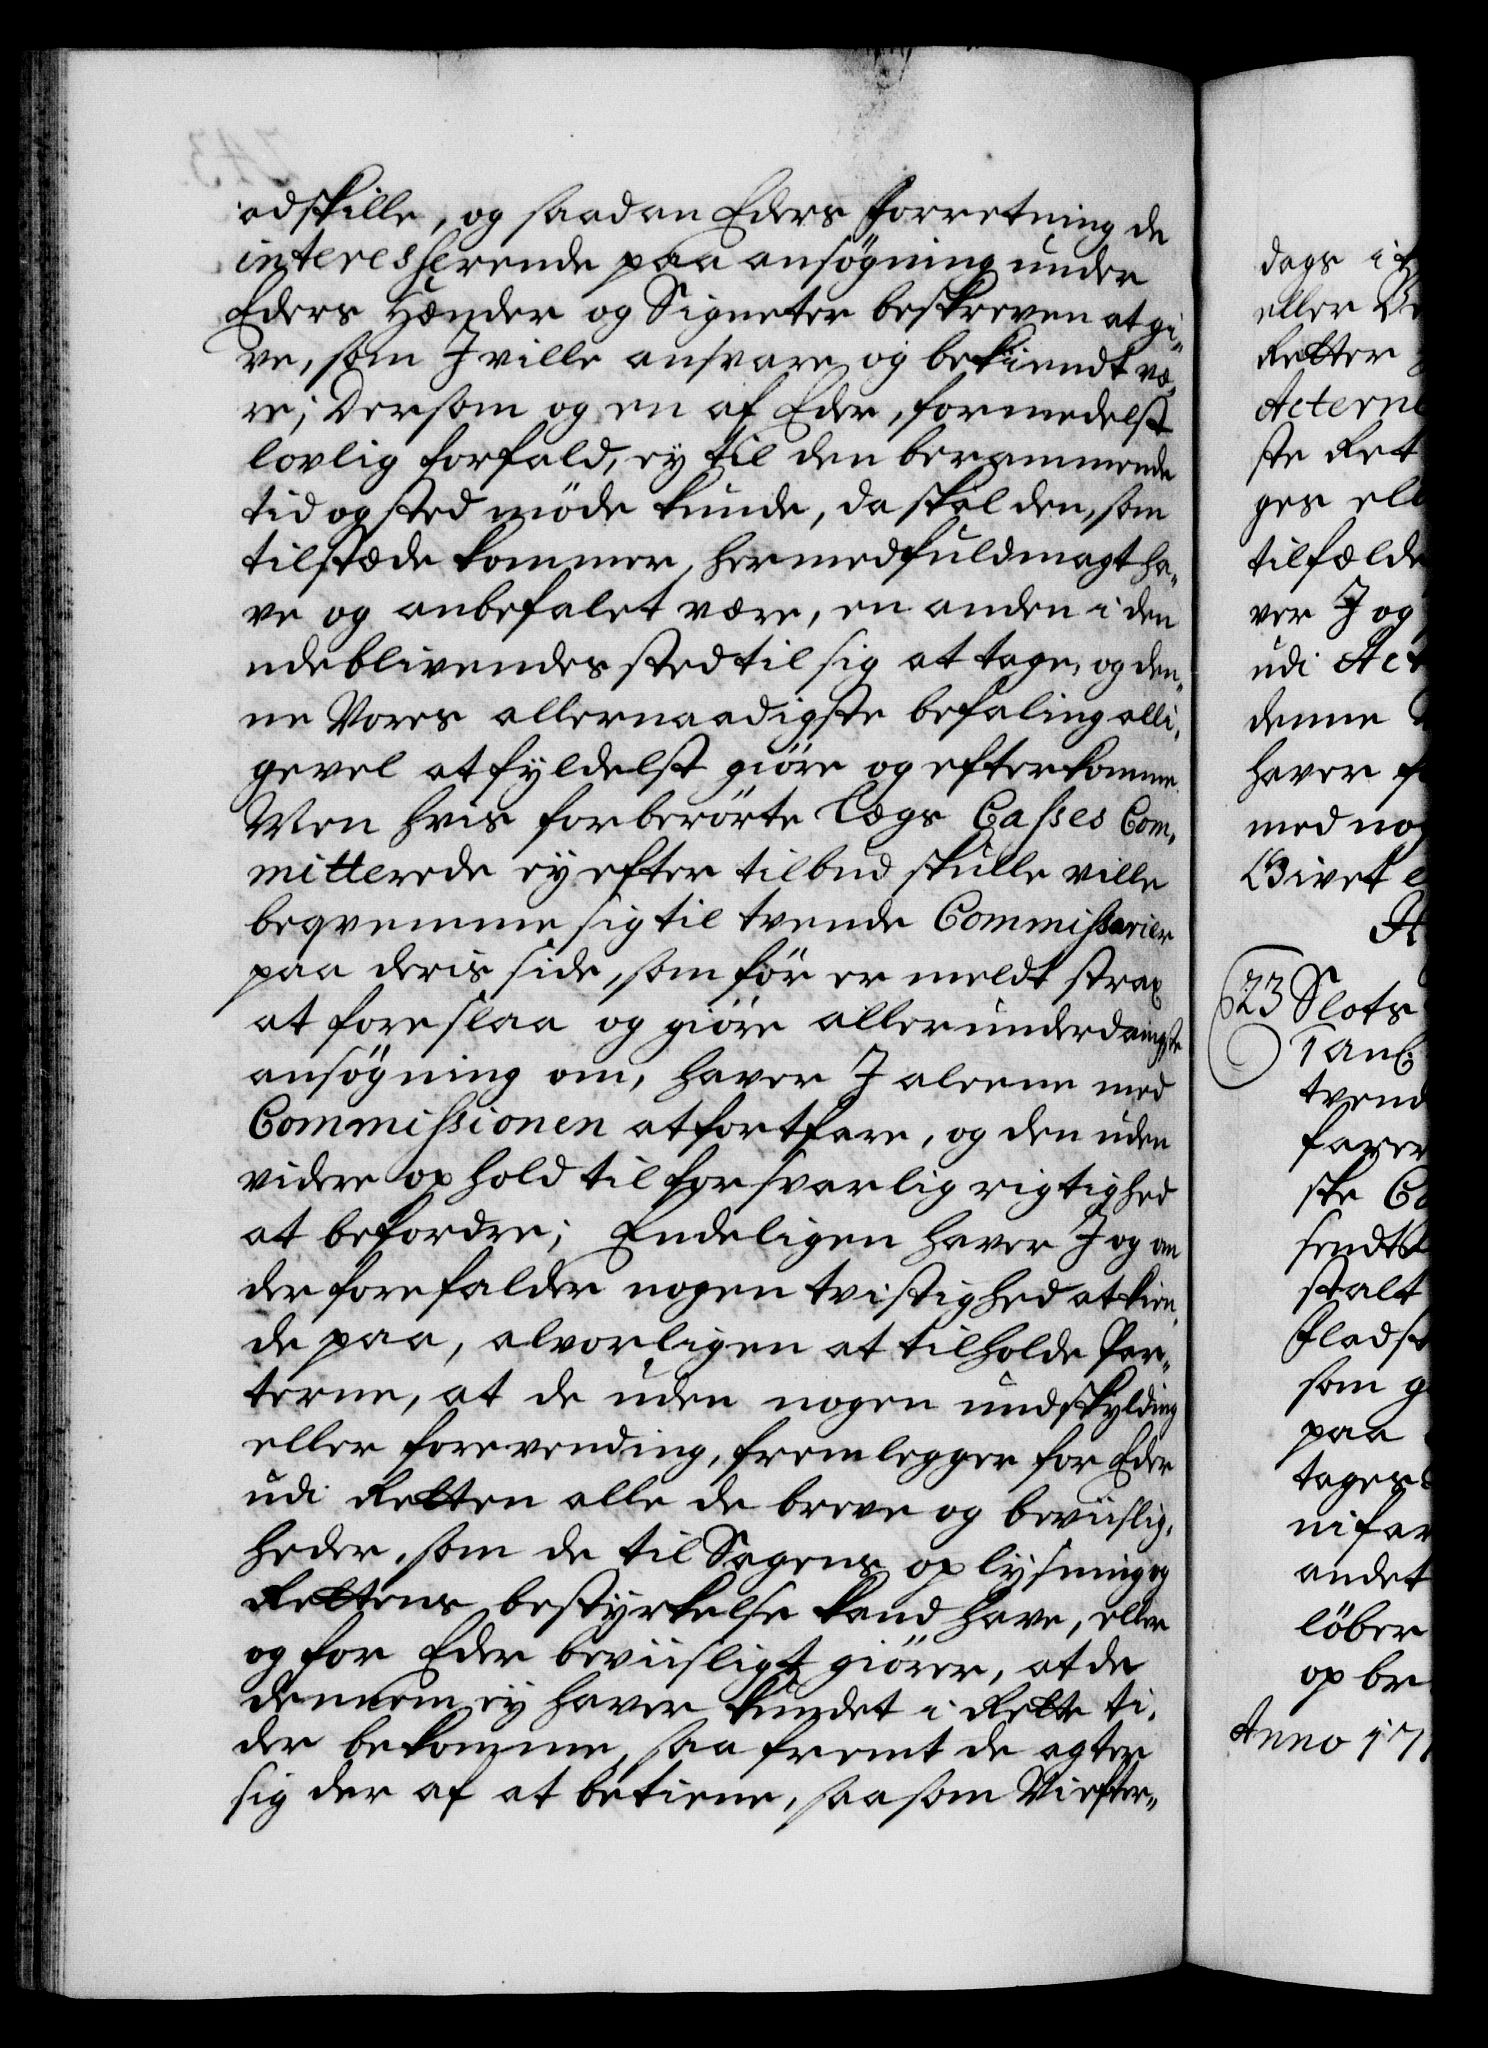 adskille, og saadan Eders Forretning de
interesserende paa ansøgning under
Eders Hænder og Signeter beskreven at gi-
ve, som I ville ansvare og bekiendt væ-
re; Dersom og en af Eder, formedelst
lovlig forfald, ey til den berammende
tid og sted møde kunde, da skal den, som
tilstæde kommer, hermed fuldmagt ha-
ve og anbefalet være, en anden i den
udeblivendes sted til sig at tage, og den-
ne Vores allernaadigste befaling alli-
gevel at fyldelst giøre og efterkomme.
Men hvis forberørte Lægs Casses Com-
mitterede ey efter tilbud skulle ville
beqvemme sig til tvende Commissarier
paa deris side, som før er meldt strax
at foreslaa og giøre allerunderdanigste
ansøgning om, haver I aleene med
Commissionen at fortfare, og den uden
videre ophold til forsvarlig rigtighed
at befordre; Endeligen haver I og om
der forefalder nogen tvistighed at kien-
de paa, alvorligen at tilholde Par-
terne, at de uden nogen undskylding
eller forevending, fremlegger for Eder
udi Retten alle de breve og beviislig-
heder, som de til Sagens oplysning og
Rettens bestyrkelse kand have, eller
og for Eder beviisligt giører, at de
dennem ey haver kundet i Rette ti-
der bekomme, saa fremt de agter
sig der af at betiene, saasom Vi efter-
dags i
eller
Retter
Acterne
ste Ret
ges ell
tilfælde
ver I og
udi Act
denne
haver
med nog
Givet
623 Slots
tvend
farer
ske
sendt
stalt
Fladst
som g
paa
tages
andet
løber
op be
Anno 171